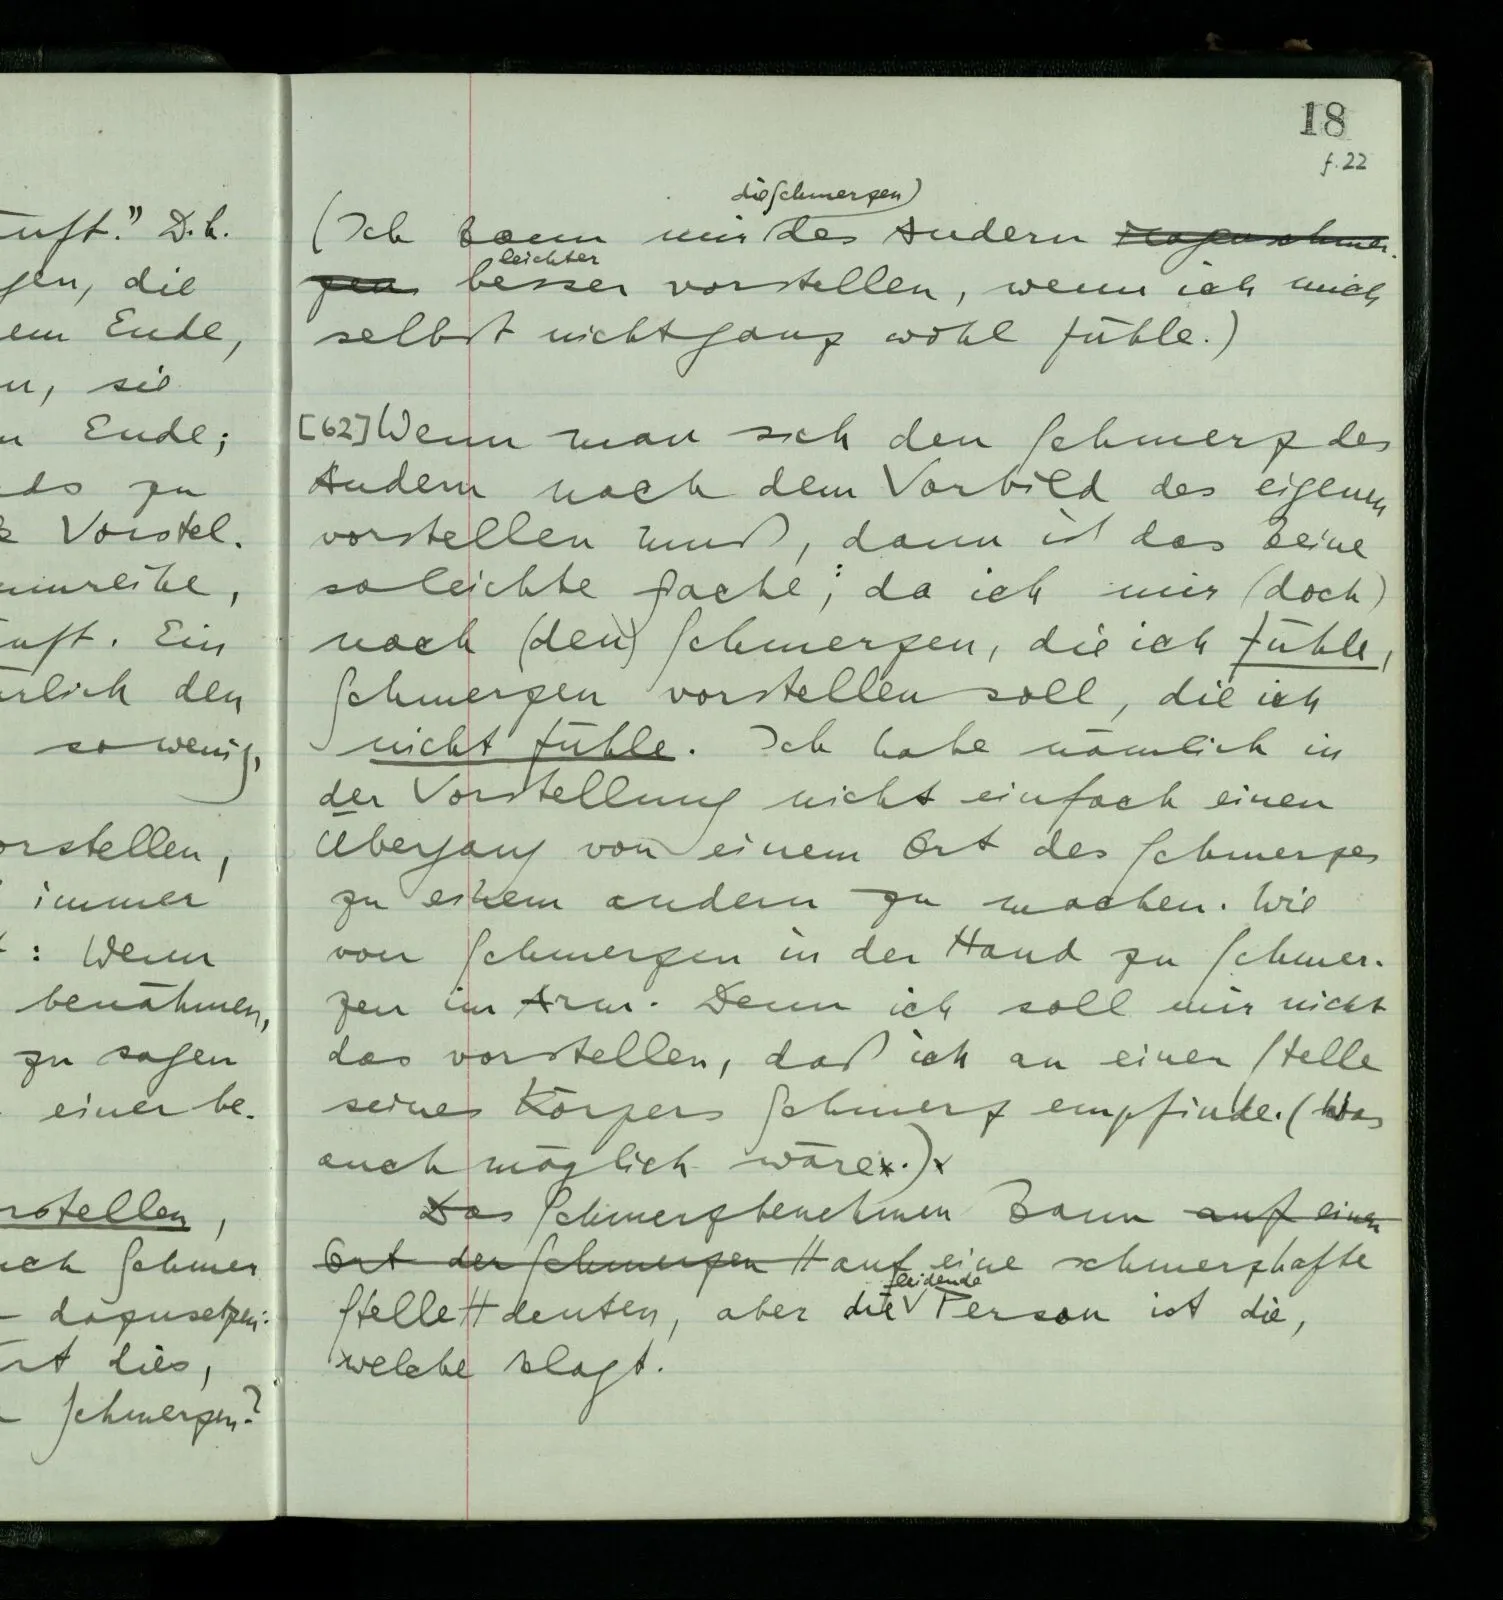 uft." D.h.
gen, die
em Ende,
n, sie
n Ende;
ds zu
Vorstel-
nreihe,
uft. Ein
rlich den
so wenig,
orstellen,
immer
: Wenn
benähmen,
zu sagen
einer be-
rstellen,
ch Schmer
dazusetzen:
rt dies,
Schmerzen?
18
f. 22
die Schmerzen)
(Ich kann mir des Andern Magenschmer-
leichter
zen besser vorstellen, wenn ich mich
selbst nicht ganz wohl fühle.)
[62] Wenn man sich den Schmerz des
Andern nach dem Vorbild des eigenen
vorstellen muß, dann ist das keine
so leichte Sache; da ich mir (doch)
nach (den) Schmerzen, die ich fühle,
Schmerzen vorstellen soll, die ich
nicht fühle. Ich habe nämlich in
der Vorstellung nicht einfach einen
Übergang von einem Ort des Schmerzes
zu einem andern zu machen. Wie
von Schmerzen in der Hand zu Schmer-
zen im Arm. Denn ich soll mir nicht
das vorstellen, daß ich an einer Stelle
seines Körpers Schmerz empfinde. (Was
auch möglich wäre.)
Das Schmerzbenehmen kann auf einen
Ort der Schmerzen auf eine schmerzhafte
leidende
Stelle deuten, aber die Person ist die,
welche klagt.